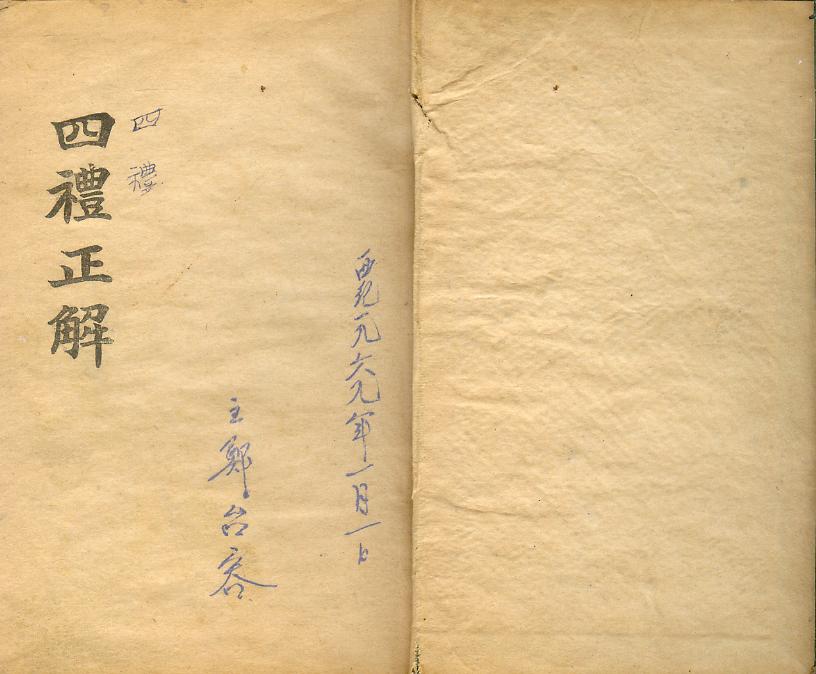 西紀一九六九年一月一日
主鄭台容
四禮
四禮正解